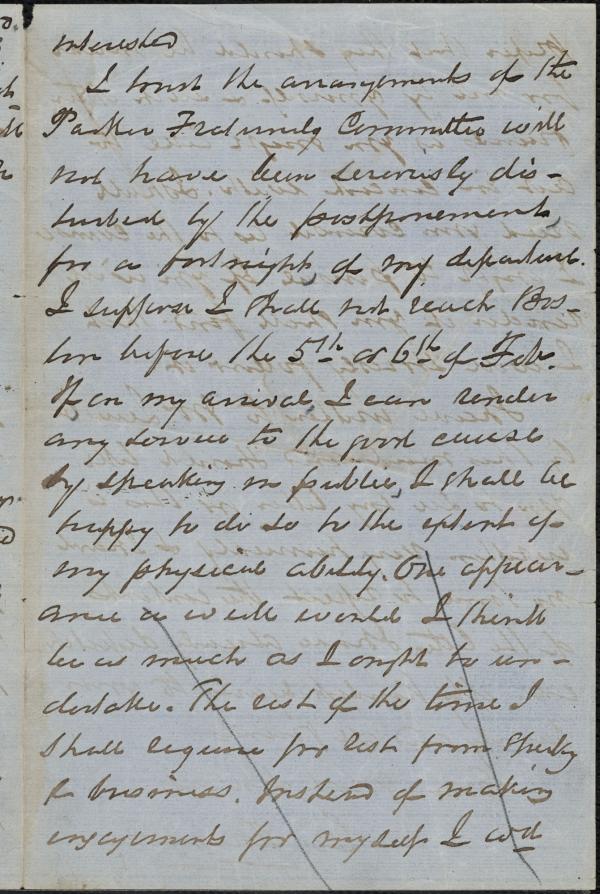 interested
I trust the arrangements of the
Parker Fraternity Committee will
not have been seriously dis-
turbed by the postponement
for a fortnight, of my departure.
I suppose I shall not reach Bos-
ton before the 5th or 6th of Feb.
If on my arrival I can render
any service to the good cause
by speaking in public, I shall be
happy to do so to the extent of
my physical ability. One appear-
ance a week would I think
be as much as I ought to un-
dertake. The rest of the time I
shall require for rest from
& business. Instead of making
engagements for myself I wd